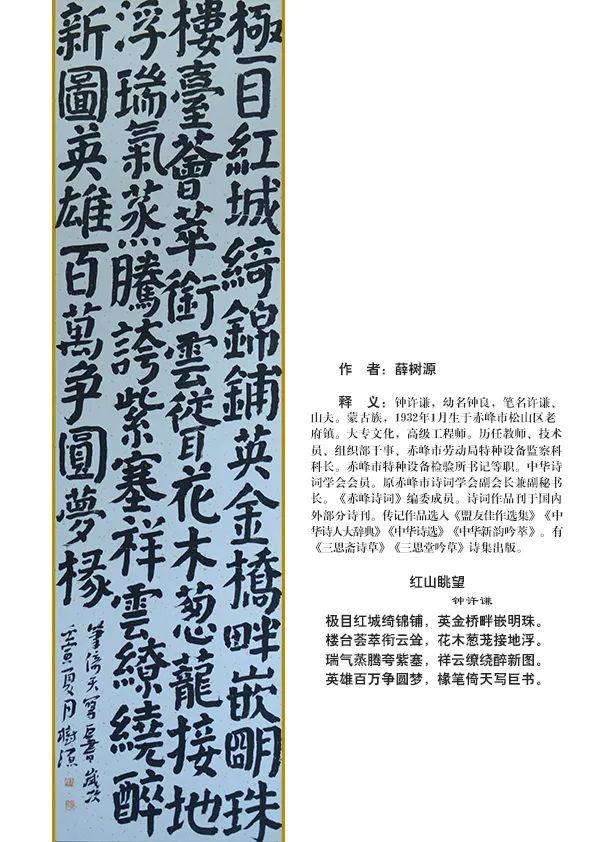 極目紅城綺錦鋪英金橋畔嵌明珠
樓臺薈萃銜雲聳花木葱蘢接地
浮瑞氣蒸騰誇紫塞祥雲繚繞醉
新圖英雄百萬争圓夢椽
筆倚天寫巨書歲次
壬寅夏月樹源
作 者：薛树源
释 义：钟许谦，幼名钟良，笔名许谦、
山夫。蒙古族，1932年1月生于赤峰市松山区老
府镇。大专文化，高级工程师。历任教师、技术
员、组织部干事、赤峰市劳动局特种设备监察科
科长。赤峰市特种设备检验所书记等职。中华诗
词学会会员。原赤峰市诗词学会副会长兼副秘书
长。《赤峰诗词》编委成员。诗词作品刊于国内
外部分诗刊。传记作品选入《盟友佳作选集》《中
华诗人大辞典》《中华诗选》《中华新韵吟萃》。有
《三思斋诗草》《三思堂吟草》诗集出版。
红山眺望
钟许谦
极目红城绮锦铺，英金桥畔嵌明珠。
楼台荟萃衔云耸，花木葱茏接地浮。
瑞气蒸腾夸紫塞，祥云缭绕醉新图。
英雄百万争圆梦，椽笔倚天写巨书。